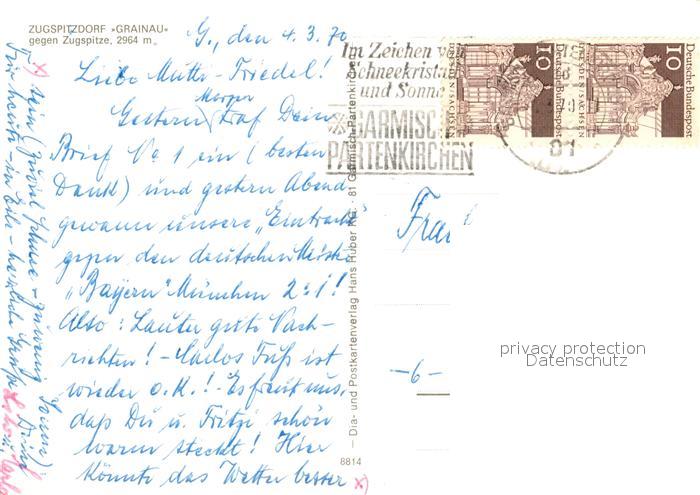 ZUGSPITZDORF »GRAINAU«
gegen Zugspitze, 2964 m
G., den 4. 3. 70
Liebe Mutti-Friedel!
Gestern Morgen traf Dein
Brief No 1 ein (besten
Dank) und gestern Abend
gewann unsere „Eintracht"
gegen den deutschen Meister
„Bayern" München 2:1!
Also: Lauter gute Nach-
richten! - Carlos Fuß ist
wieder o.K.! - Es freut uns,
daß Du u. Fritzi schön
warm steckt! Hier
könnte das Wetter besser x)
x) sein (zuviel Schnee - zuwenig Sonne)
Für heute - in Eile - herzliche Grüße Deine
Im Zeichen von
Schneekristall
und Sonne
GARMISCH-
PARTENKIRCHEN
81
10
Deutsche Bundespost
DRESDEN/SACHSEN
10
Deutsche Bundespost
DRESDEN/SACHSEN
— Dia- und Postkartenverlag Hans Huber KG · 81 Garmisch-Partenkirchen
8814
Frau
-6-
privacy protection
Datenschutz